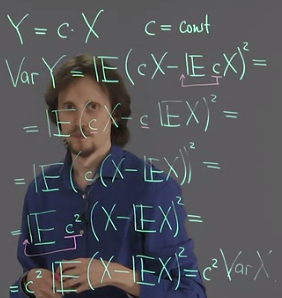 Y = c · X   c = const
Var Y = 𝔼(cX − 𝔼cX)² =
= 𝔼(cX − c 𝔼X)² =
= 𝔼(c(X − 𝔼X))² =
= 𝔼 c² (X − 𝔼X)² =
= c² 𝔼(X − 𝔼X)² = c² Var X.